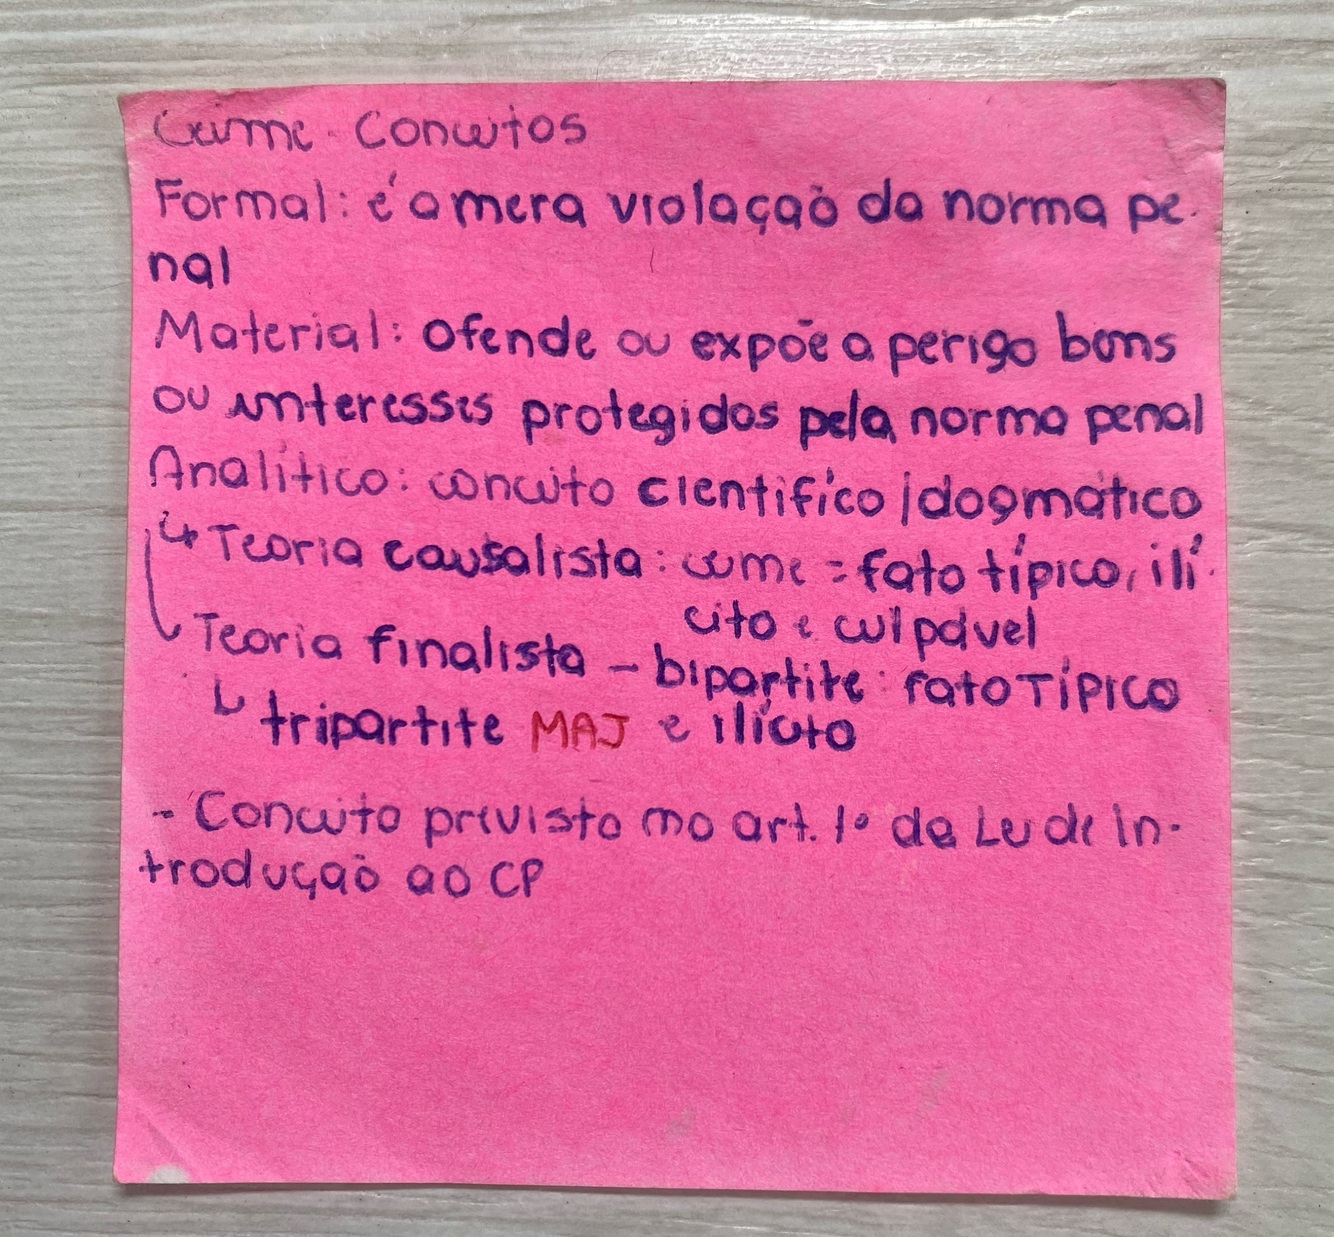 Crime - Conceitos
Formal: é a mera violação da norma pe-
nal
Material: Ofende ou expõe a perigo bens
ou interesses protegidos pela norma penal
Analítico: conceito científico/dogmático
↳ Teoria causalista: crime = fato típico, ilí-
cito e culpável
↳ Teoria finalista - bipartite: fato Típico
↳ tripartite MAJ e ilícito
- Conceito previsto no art. 1º da Lei de In-
trodução ao CP